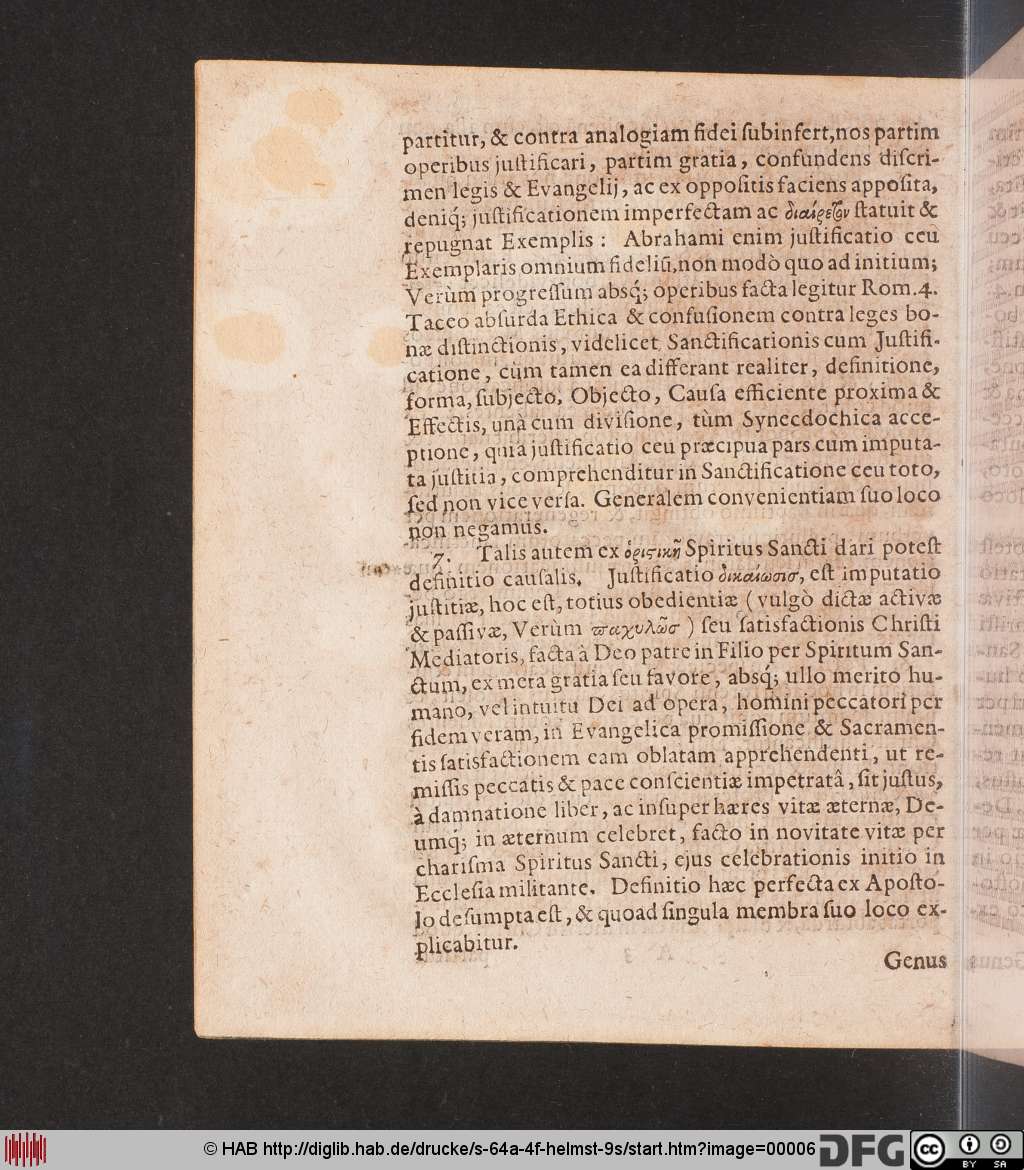 partitur, & contra analogiam fidei ſubinfert,nos partim
operibus juſtificari, partim gratia, confundens diſcri-
men legis & Evangelij, ac ex oppoſitis faciens appoſita,
deniq́; juſtificationem imperfectam ac διαίρετὸν ſtatuit &
repugnat Exemplis : Abrahami enim juſtificatio ceu
Exemplaris omnium fideliũ,non modò quo ad initium;
Verùm progreſſum absq́; operibus facta legitur Rom.4.
Taceo abſurda Ethica & confuſionem contra leges bo-
næ diſtinctionis, videlicet Sanctificationis cum Juſtifi-
catione, cùm tamen ea differant realiter, definitione,
forma, ſubjecto, Objecto, Cauſa efficiente proxima &
Effectis, unà cum diviſione, tùm Synecdochica acce-
ptione, quia juſtificatio ceu præcipua pars cum imputa-
ta juſtitia, comprehenditur in Sanctificatione ceu toto,
ſed non vice verſa. Generalem convenientiam ſuo loco
non negamus.
7. Talis autem ex ὁριϛικῆ Spiritus Sancti dari poteſt
definitio cauſalis. Juſtificatio δικαίωσισ, eſt imputatio
juſtitiæ, hoc eſt, totius obedientiæ ( vulgò dictæ activæ
& paſſivæ, Verùm παχυλῶσ ) ſeu ſatisfactionis Chriſti
Mediatoris, facta à Deo patre in Filio per Spiritum San-
ctum, ex mera gratia ſeu favore, absq́; ullo merito hu-
mano, vel intuitu Dei ad opera, homini peccatori per
fidem veram, in Evangelica promiſſione & Sacramen-
tis ſatisfactionem eam oblatam apprehendenti, ut re-
miſſis peccatis & pace conſcientiæ impetratâ, ſit juſtus,
à damnatione liber, ac inſuper hæres vitæ æternæ, De-
umq́; in æternum celebret, facto in novitate vitæ per
chariſma Spiritus Sancti, ejus celebrationis initio in
Eccleſia militante. Definitio hæc perfecta ex Apoſto-
lo deſumpta eſt, & quoad ſingula membra ſuo loco ex-
plicabitur.
Genus
© HAB http://diglib.hab.de/drucke/s-64a-4f-helmst-9s/start.htm?image=00006
DFG
cc
BY SA